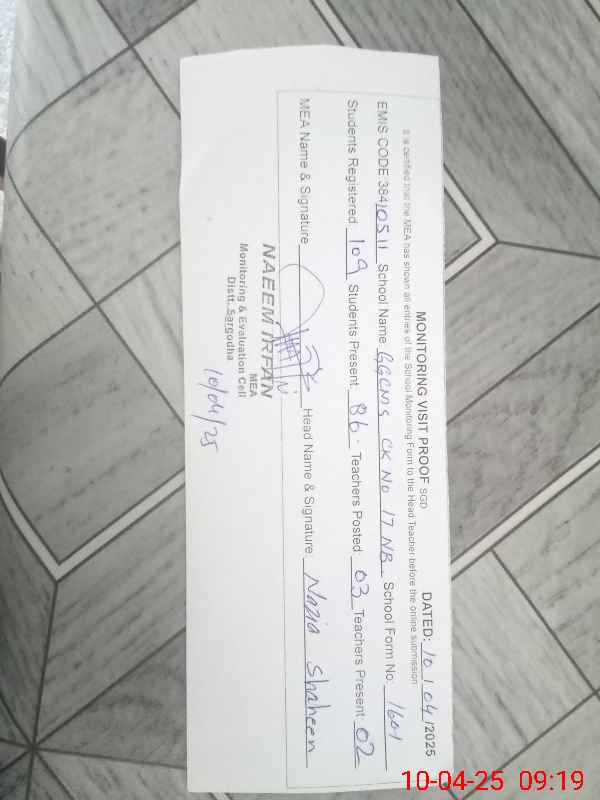 MONITORING VISIT PROOF SGD DATED: 10/04/2025
It is certified that the MEA has shown all entries of the School Monitoring Form to the Head Teacher before the online submission
EMIS CODE 38410511 School Name: GGCMS CK No 17 NB School Form No: 1601
Students Registered 109 Students Present 86 Teachers Posted: 03 Teachers Present 02
MEA Name & Signature Head Name & Signature Nazia Shaheen
NAEEM IRFAN
MEA
Monitoring & Evaluation Cell
Distt. Sargodha
10/04/25
10-04-25 09:19